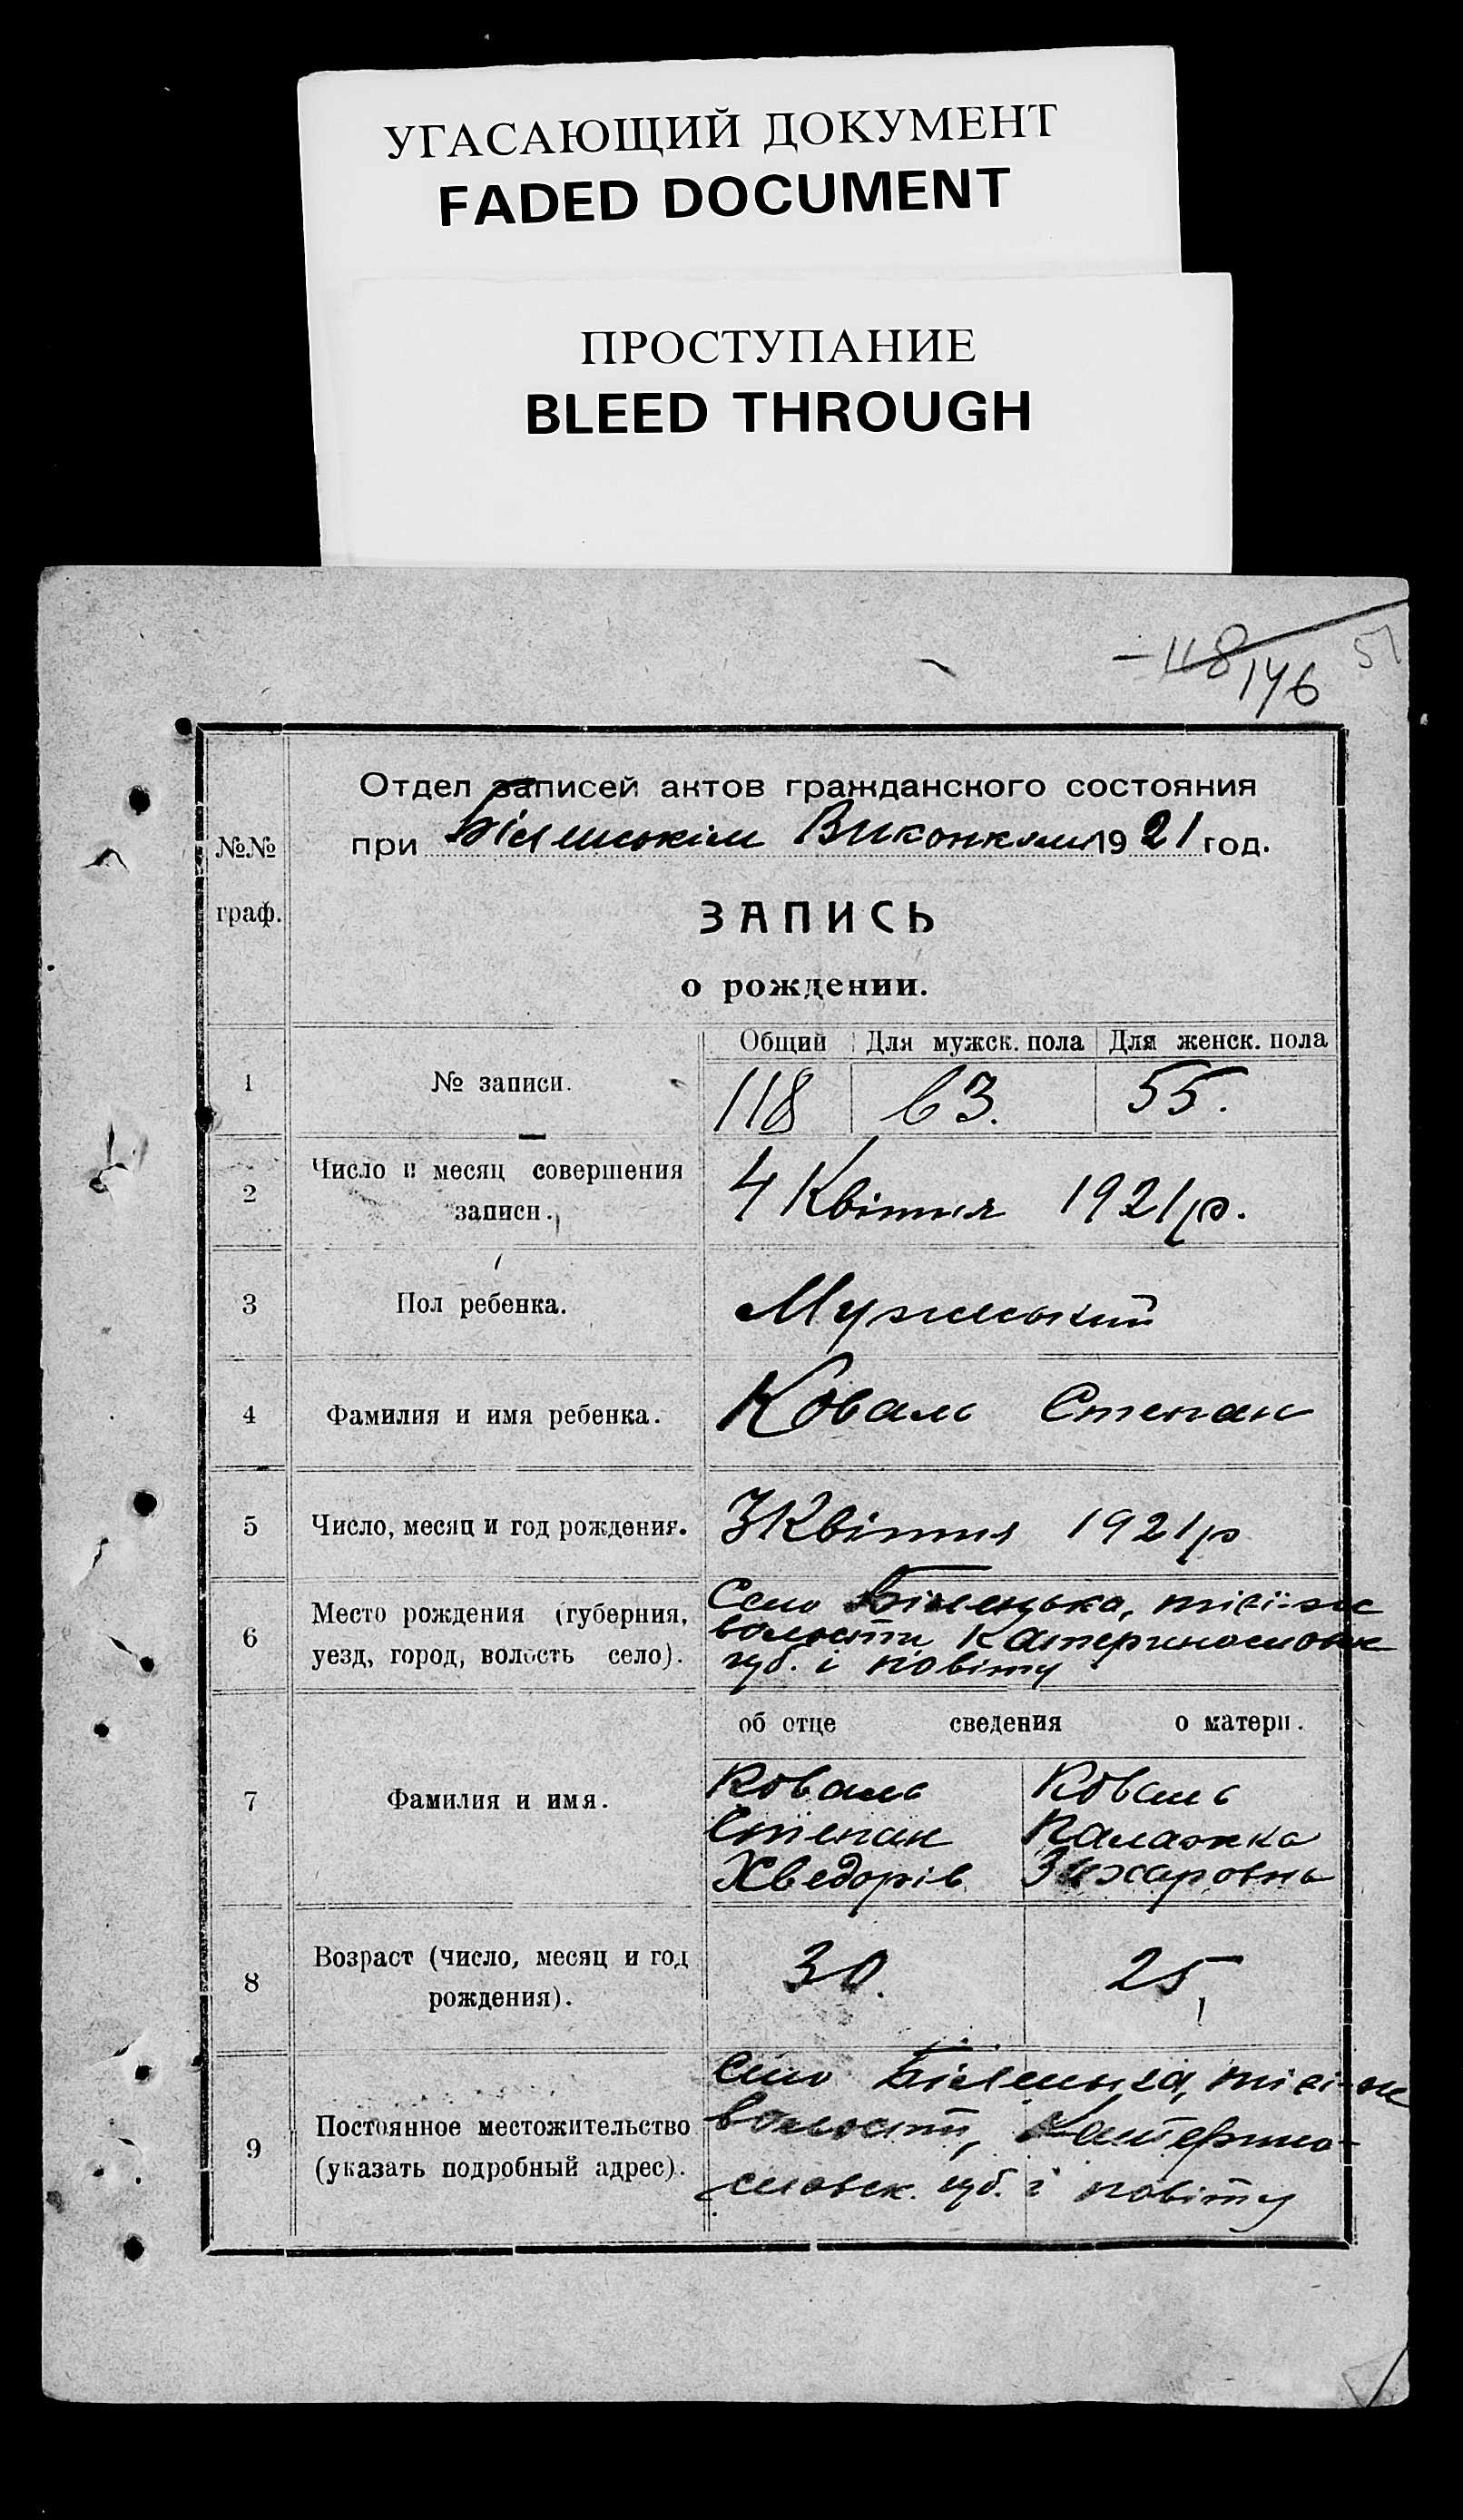 УГАСАЮЩИЙ ДОКУМЕНТ
FADED DOCUMENT
ПРОСТУПАНИЕ
BLEED THROUGH
118 51
146
Отдел записей актов гражданского состояния
№№ при Виконкомі 1921 год.
граф.
ЗАПИСЬ
о рождении.
Общий Для мужск. пола Для женск. пола
1 № записи. 118 63. 55.
2 Число и месяц совершения записи. 4 Квітня 1921 р.
3 Пол ребенка. Мужеський
4 Фамилия и имя ребенка. Коваль Степан
5 Число, месяц и год рождения. 3 Квітня 1921 р
6 Место рождения (губерния, Село тієї-ж
уезд, город, волость село). волости Катеринославськ
губ. і повіту
об отце сведения о матери.
7 Фамилия и имя. Коваль Коваль
Степан Палажка
Хведорів Захаровна
8 Возраст (число, месяц и год рождения). 30. 25,
9 Постоянное местожительство Село тієї-ж
(указать подробный адрес). волости, Катерино-
славск. губ. і повіту